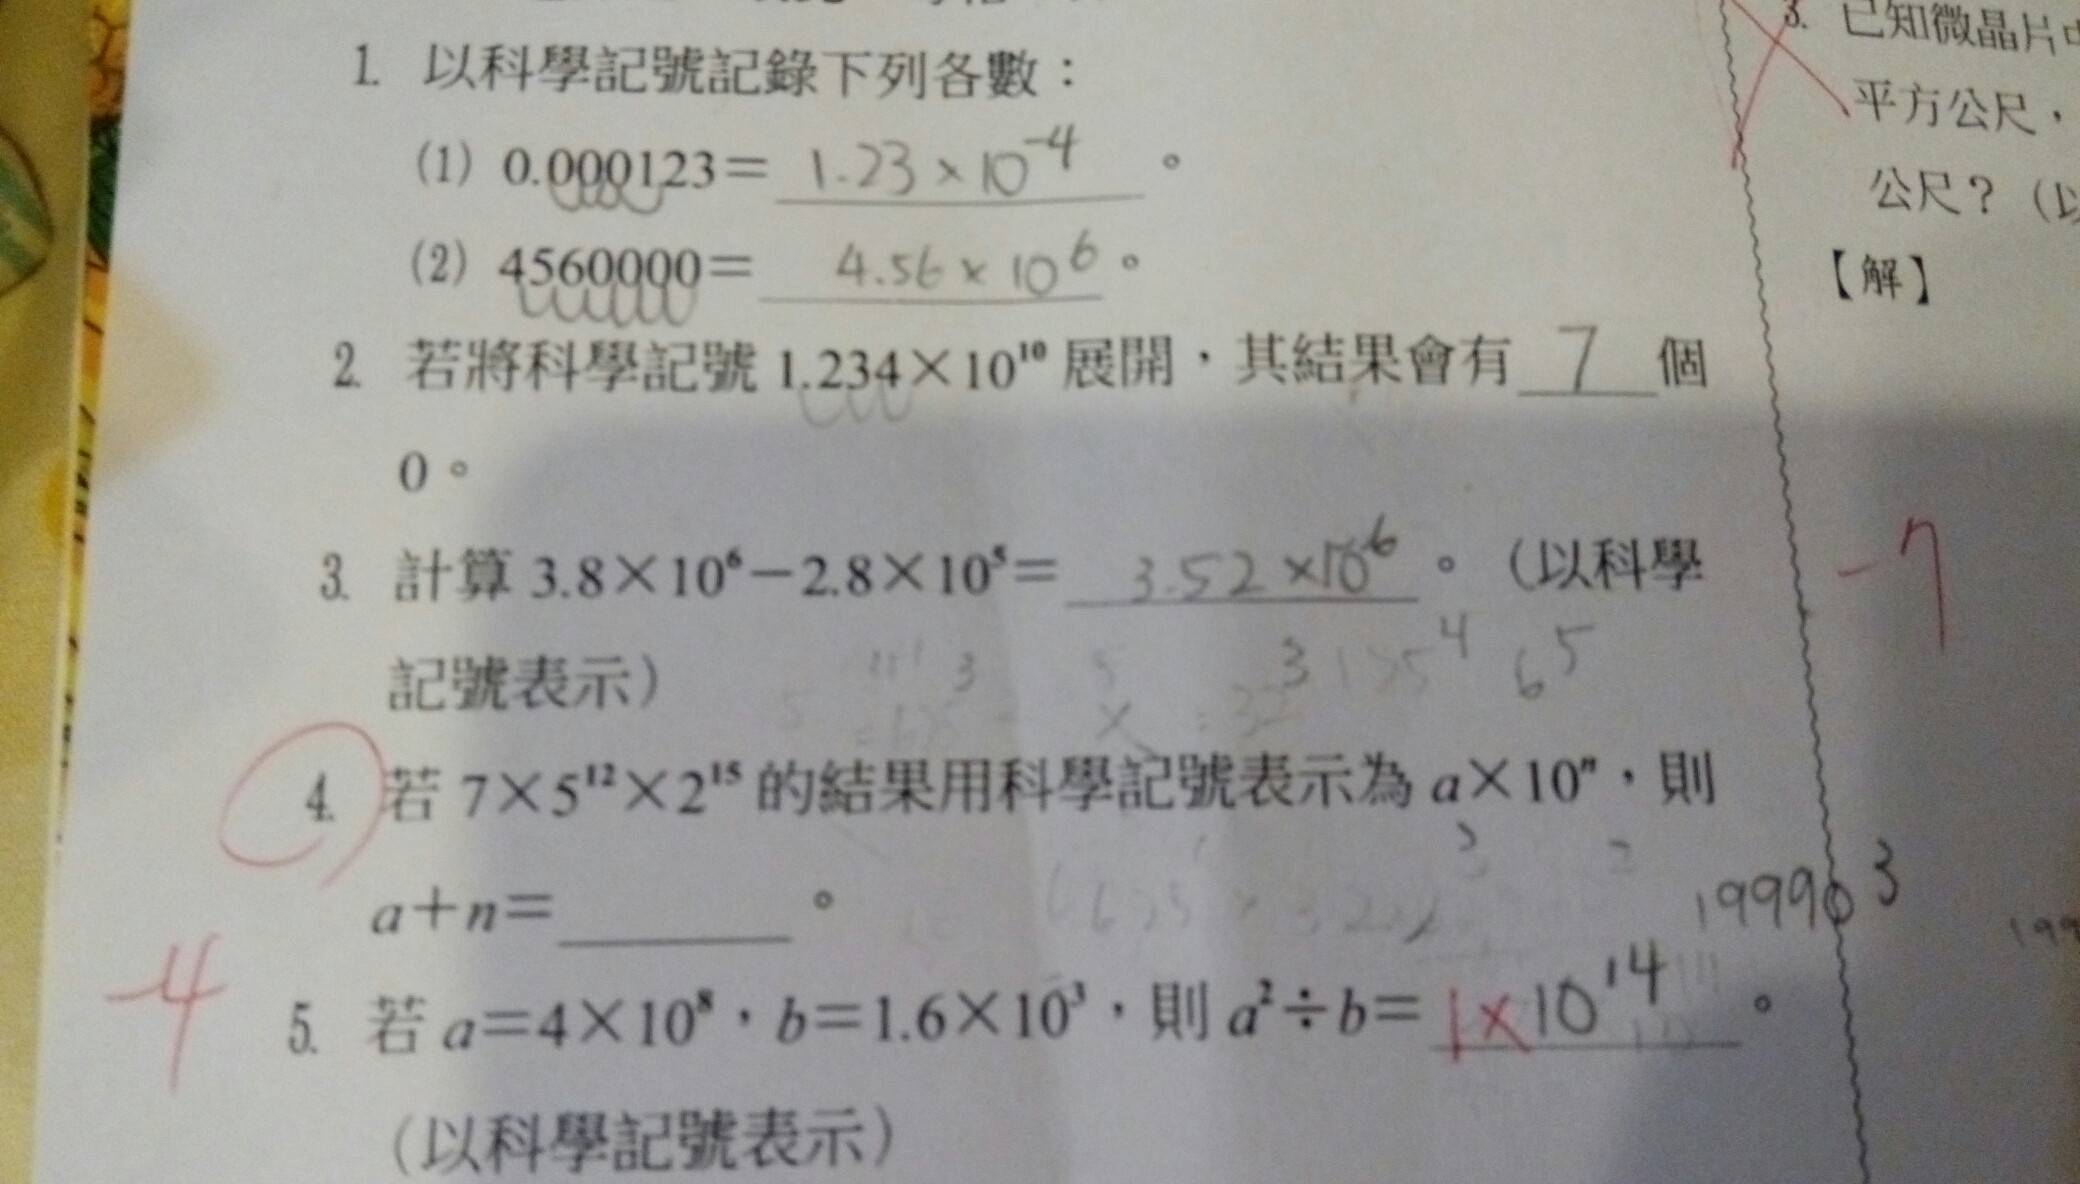 1. 以科學記號記錄下列各數：
(1) 0.000123＝ 1.23×10⁻⁴ 。
(2) 4560000＝ 4.56×10⁶ 。
2. 若將科學記號 1.234×10¹⁰ 展開，其結果會有 7 個
0。
3. 計算 3.8×10⁶－2.8×10⁵＝ 3.52×10⁶ 。（以科學
記號表示）
4. 若 7×5¹²×2¹⁵ 的結果用科學記號表示為 a×10ⁿ，則
a＋n＝ 。
-4
5. 若 a＝4×10⁸，b＝1.6×10³，則 a²÷b＝ 1×10¹⁴ 。
（以科學記號表示）
3. 已知微晶片
平方公尺，
公尺？（以
【解】
-7